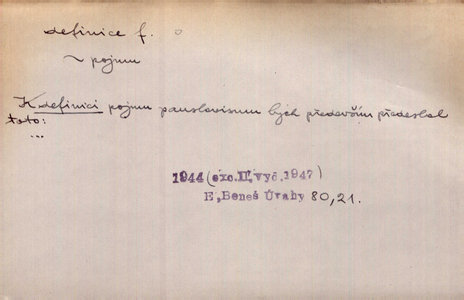 definice f.
~ pojmu
K definici pojmu panslavismu bych především předeslal
toto:
...
1944 (exc.II,vyč.1947)
E,Beneš Úvahy 80,21.